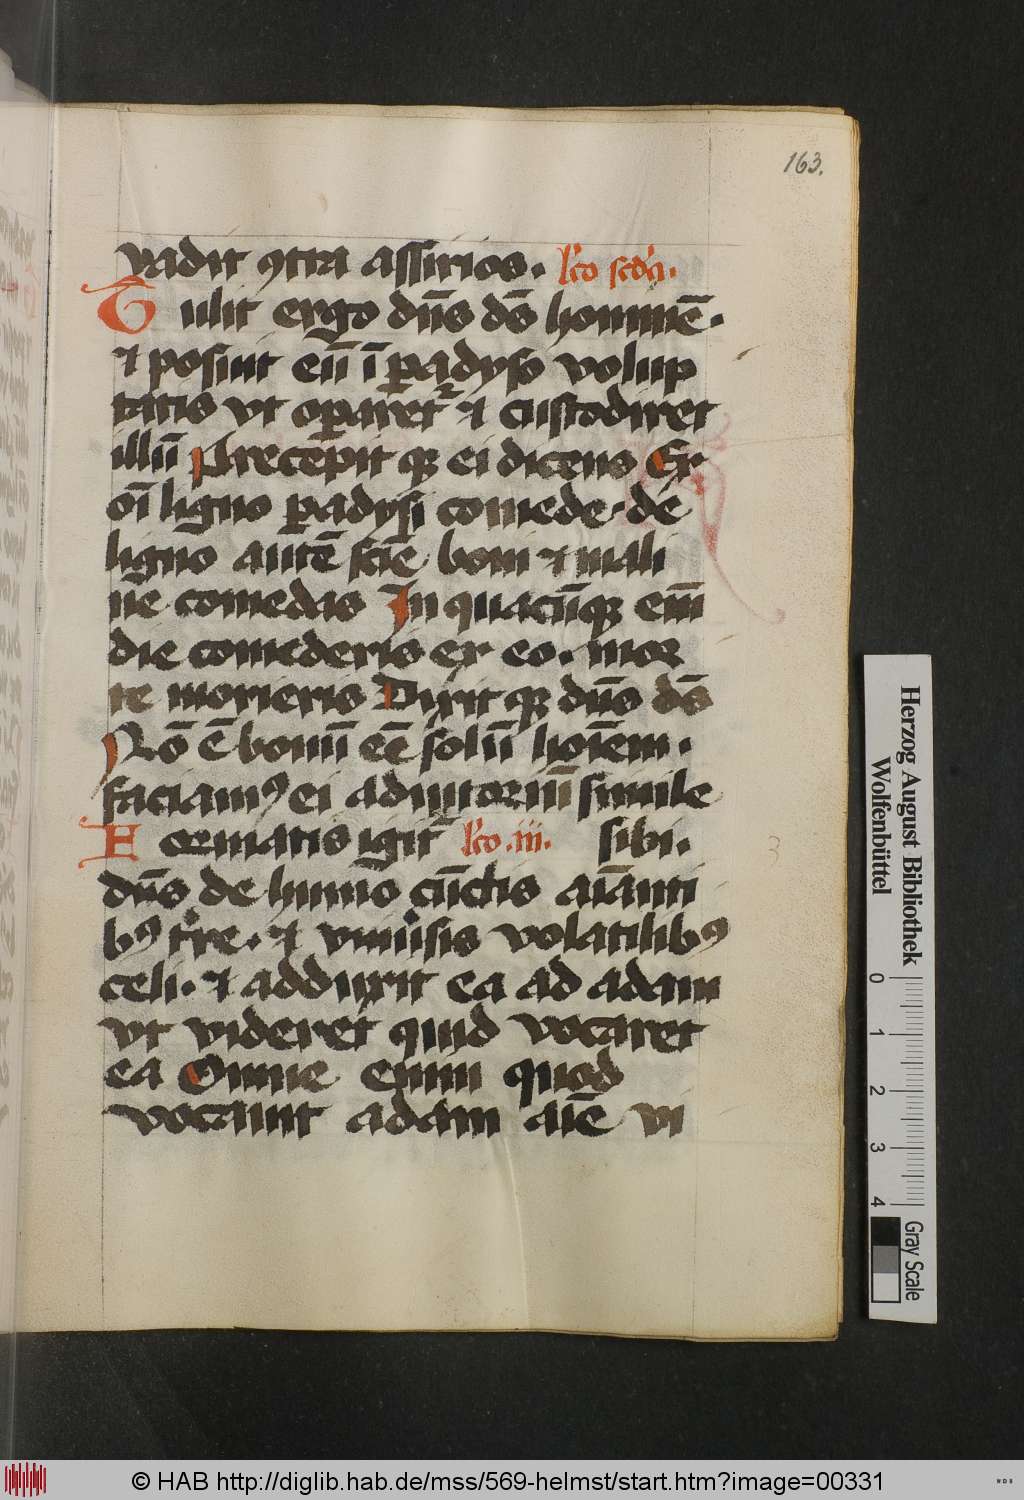 163.
vadit ꝯtra assirios. lc̄o scd̄a.
Tulit ergo dn̄s ds̄ hominē.
⁊ posuit eū ī ꝑadyso volup
tatis vt oꝑaret᷑ ⁊ custodiret
illū Precepit qꝫ ei dicens Ex
oī ligno ꝑadysi comede. de
ligno autē scīe boni ⁊ mali
ne comedas In quacūqꝫ enī
die comederis ex eo. mor
te morieris Dixit qꝫ dn̄s ds̄
Nō ē bonū eē solū hoīem.
faciamꝰ ei adiutoriū simile
Formatis igit᷑ lc̄o .iii. sibi.
dn̄s de humo cūctis aīanti
bꝰ t̄re. ⁊ vniūsis volatilibꝰ
celi. ⁊ adduxit ea ad adam
vt videret quid vocaret
ea Omne enim quod
vocauit adam aīe vi
Herzog August Bibliothek
Wolfenbüttel
0 1 2 3 4
Gray Scale
© HAB http://diglib.hab.de/mss/569-helmst/start.htm?image=00331